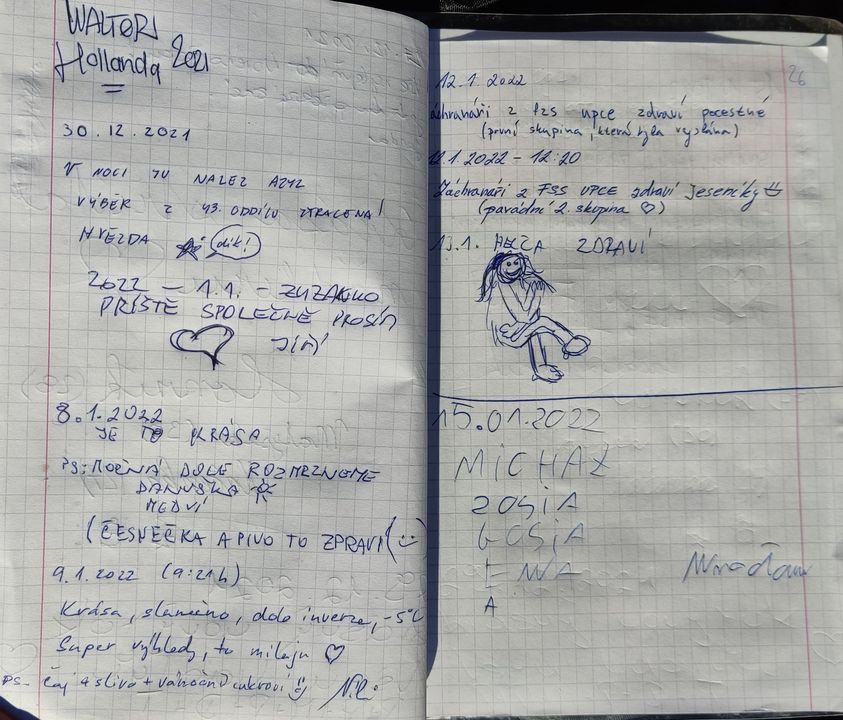 WALTOŘI
Hollanda 2021
30.12.2021
V NOCI JU NALEZ AZYL
VÝBĚR Z 43. ODDÍLU ZTRACENA!
HVĚZDA dík!
2022 — 1.1. -
PŘÍŠTĚ SPOLEČNĚ PROSÍM
JIŘÍ
8.1.2022
JE TO KRÁSA
PS: MOŽNÁ DOLE ROZMRZNEME
DANUŠKA
MEDVÍ
(ČESNEČKA A PIVO TO ZPRAVÍ
9.1.2022 (9:21h)
Krása, slunečno, dole inverze, -5°C
Super výhledy, to miluju
PS- čaj + slivo + vánoční cukroví
26
12.1.2022
áchranáři z FZS upce zdraví pocestné
(první skupina, která byla vyslána)
12.1.2022 - 12:20
Záchranáři z FSS UPCE zdraví Jeseníky
(parádní 2. skupina)
13.1. ZDRAVÍ
15.01.2022
MICHAŁ
ZOSIA
GOSIA
EWA
A